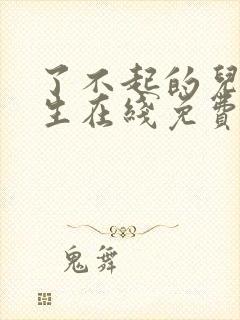 了不起的兒
生在綫免費
鬼舞